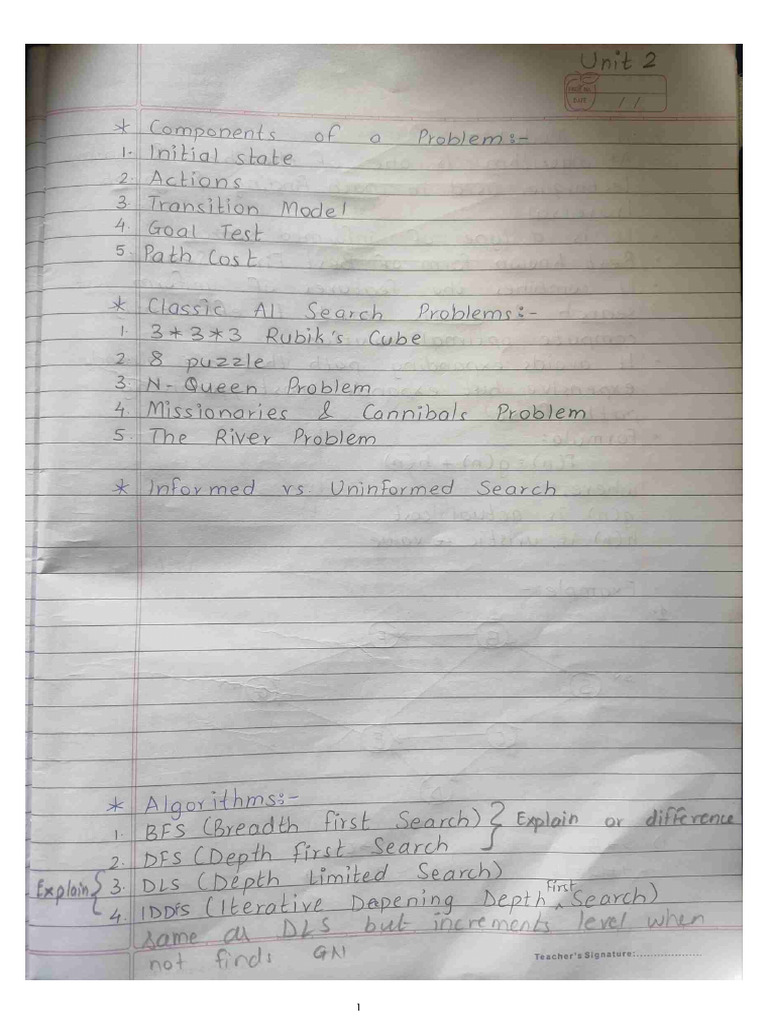 Unit 2
PAGE NO.
DATE / /
* Components of a Problem:-
1. Initial state
2. Actions
3. Transition Model
4. Goal Test
5. Path Cost
* Classic AI Search Problems:-
1. 3*3*3 Rubik's Cube
2. 8 puzzle
3. N-Queen Problem
4. Missionaries & Cannibals Problem
5. The River Problem
* Informed vs Uninformed Search
* Algorithms:-
1. BFS (Breadth First Search) } Explain or difference
2. DFS (Depth First Search
Explain { 3. DLS (Depth Limited Search)
4. IDDFS (Iterative Depening Depth First Search)
same as DLS but increments level when
not finds GN
Teacher's Signature:...................
1